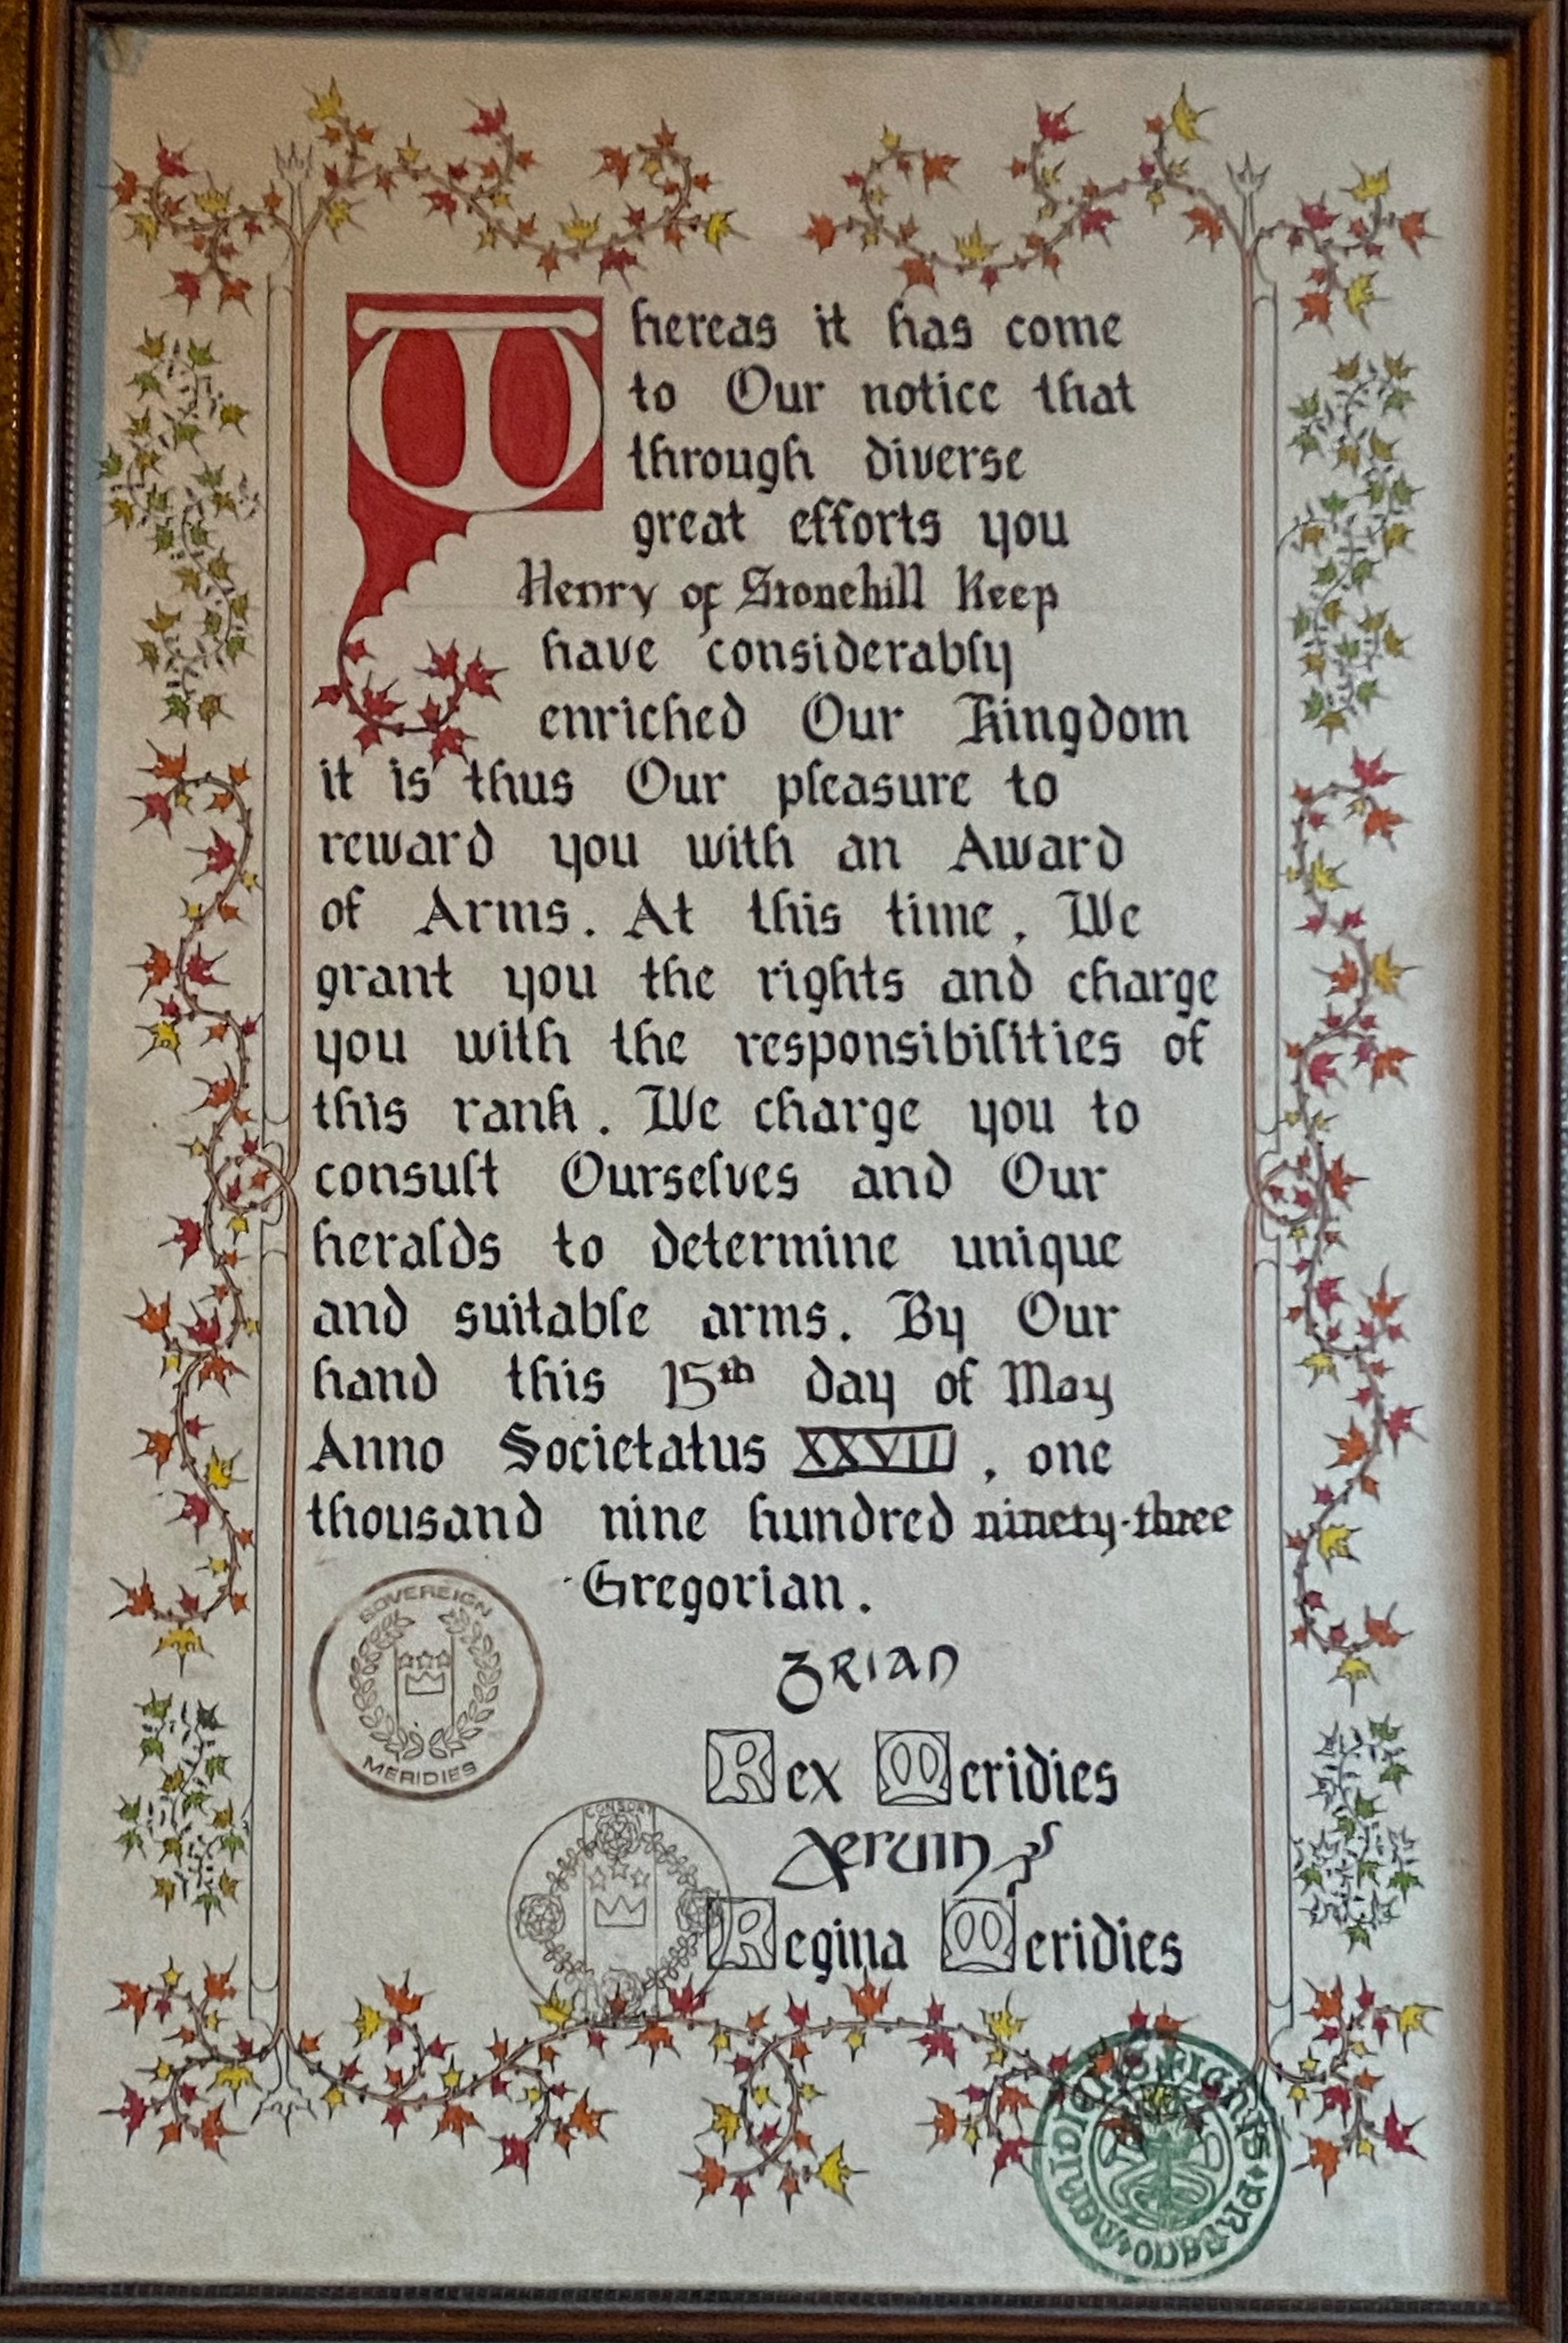 Whereas it has come
to Our notice that
through diverse
great efforts you
Henry of Stonehill Keep
have considerably
enriched Our Kingdom
it is thus Our pleasure to
reward you with an Award
of Arms. At this time, We
grant you the rights and charge
you with the responsibilities of
this rank. We charge you to
consult Ourselves and Our
heralds to determine unique
and suitable arms. By Our
hand this 15th day of May
Anno Societatus XXVIII, one
thousand nine hundred ninety-three
Gregorian.
SOVEREIGN
MERIDIES
Brian
Rex Meridies
CONSORT
Regina Meridies